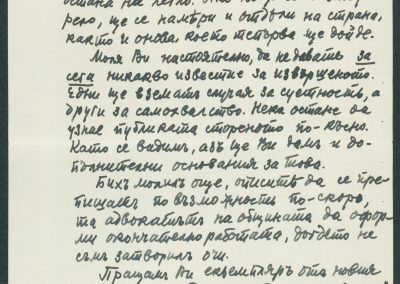 рено, ще се намѣри и отдѣли на страна,
както и онова, което тепърва ще дойде.
Моля Ви настоятелно, да не давате за
сега никакво известие за извършеното.
Едни ще взематъ случая за суетность, а
други за самохвалство. Нека остане да
узнае публиката стореното по-късно.
Като се видимъ, азъ ще Ви дамъ и до-
пълнителни основания за това.
Бихъ молилъ още, описътъ да се пре-
пишелъ по възможность по-скоро,
та адвокатътъ на общината да офор-
ми окончателно работата, докдето не
съмъ затворилъ очи.
Пращамъ Ви екземпляръ отъ новия